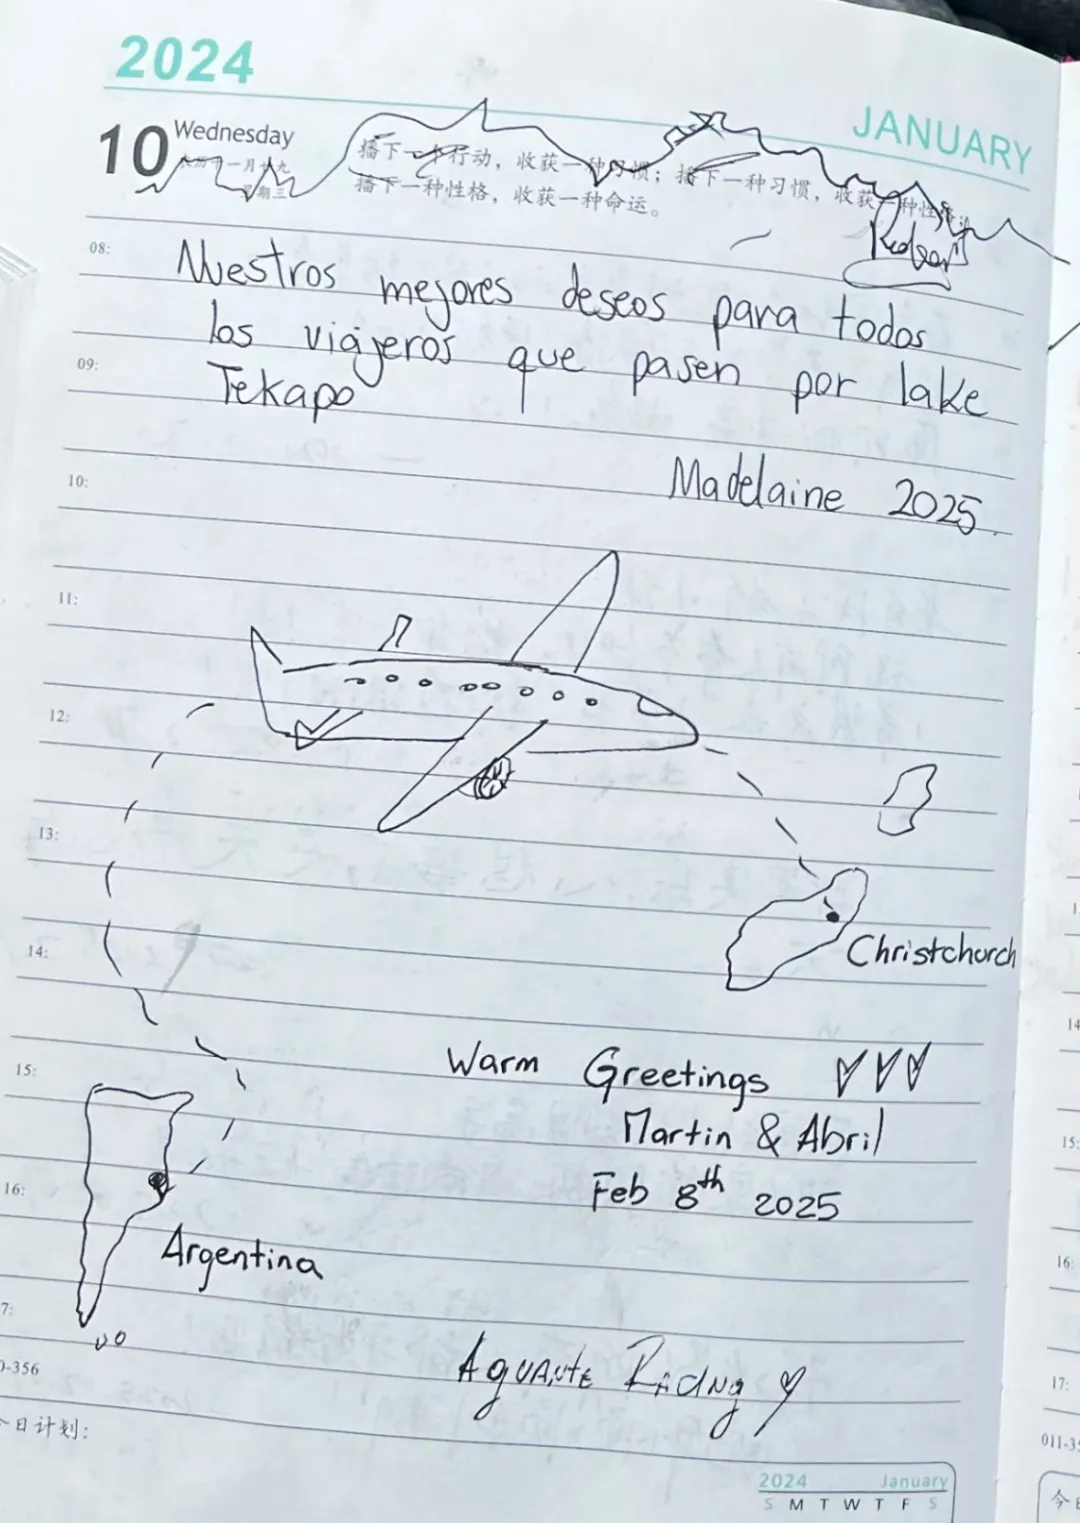 2024
JANUARY
10 Wednesday
播下一个行动，收获一种习惯；播下一种习惯，收获一种性格；
播下一种性格，收获一种命运。
08:
Nuestros mejores deseos para todos
los viajeros que pasen por lake
09:
Tekapo
10:
Madelaine 2025.
11:
12:
13:
Christchurch
14:
Warm Greetings
15:
Martin & Abril
Feb 8th 2025
16:
Argentina
7:
0-356
今日计划:
2024 January
S M T W T F S
14
15:
16:
17:
011-35